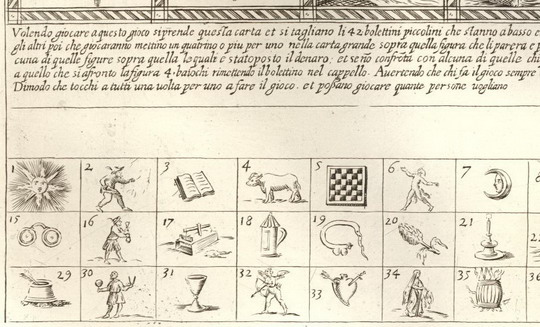 Volendo giocare a questo gioco si prende questa carta et si tagliano li 42 bolettini piccolini che stanno a basso e
gli altri poi che giocaranno mettino un quatrino o piu per uno nella carta grande sopra quella figura che li parera e p
cuna di quelle figure sopra quella le quali e stato posto il denaro, et se nō confrōta con alcuna di quelle chi
a quello che si afronto la figura 4. baiochi rimettendo il bolettino nel cappello. Auertendo che chi fa il gioco sempre
Dimodo che tocchi a tutti una uolta per uno a fare il gioco. et possano giocare quante persone uogliano
1 2 3 4 5 6 7 8
15 16 17 18 19 20 21 22
29 30 31 32 33 34 35 36